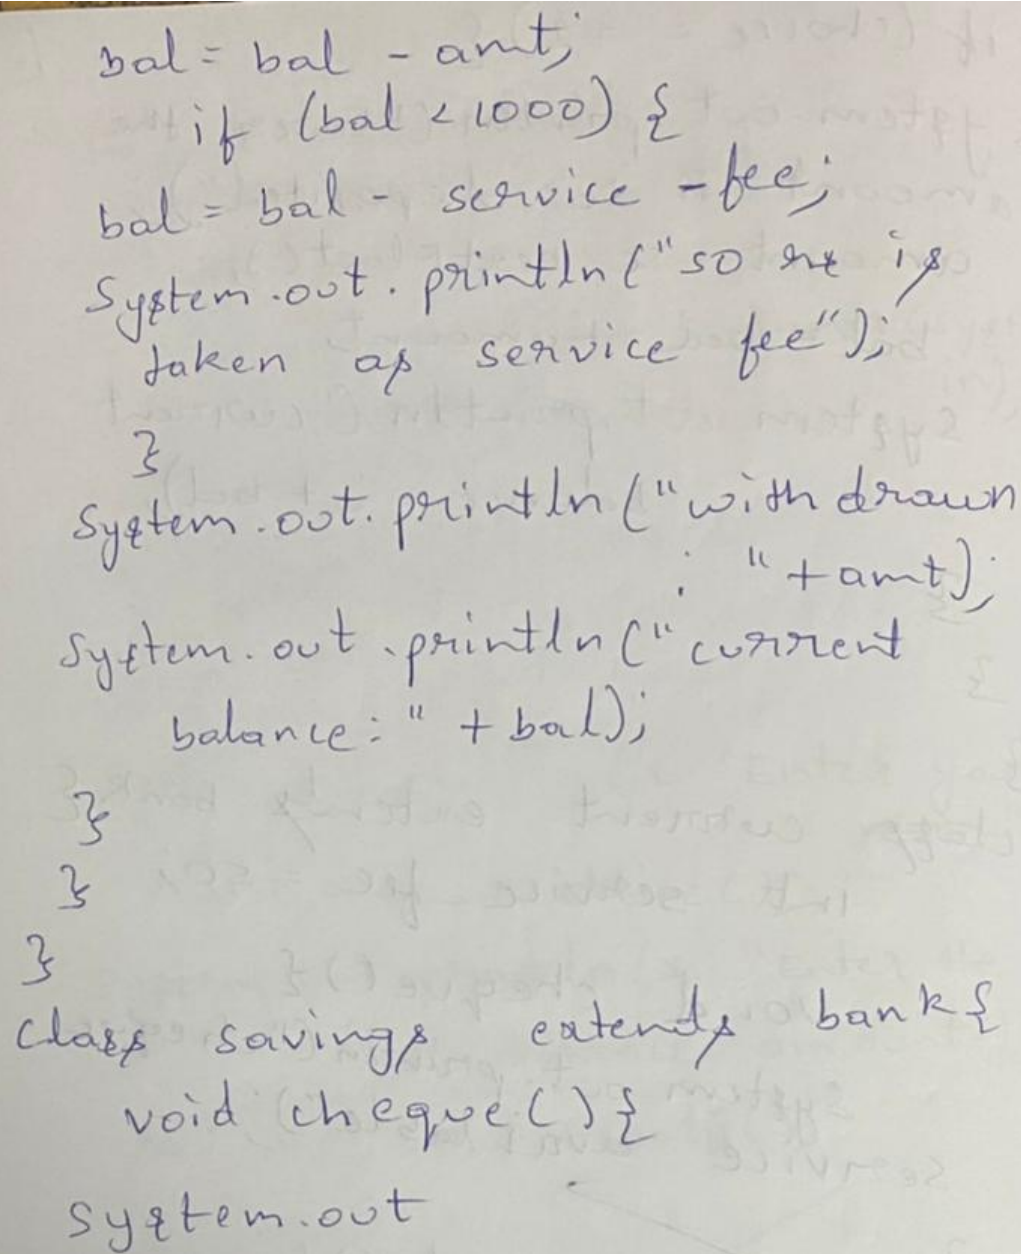 bal = bal - amt;
if (bal < 1000) {
bal = bal - service - fee;
System.out.println("so re is
taken as service fee");
}
System.out.println("with drawn
: " + amt);
System.out.println("current
balance: " + bal);
}
}
}
class savings extends bank {
void cheque() {
system.out